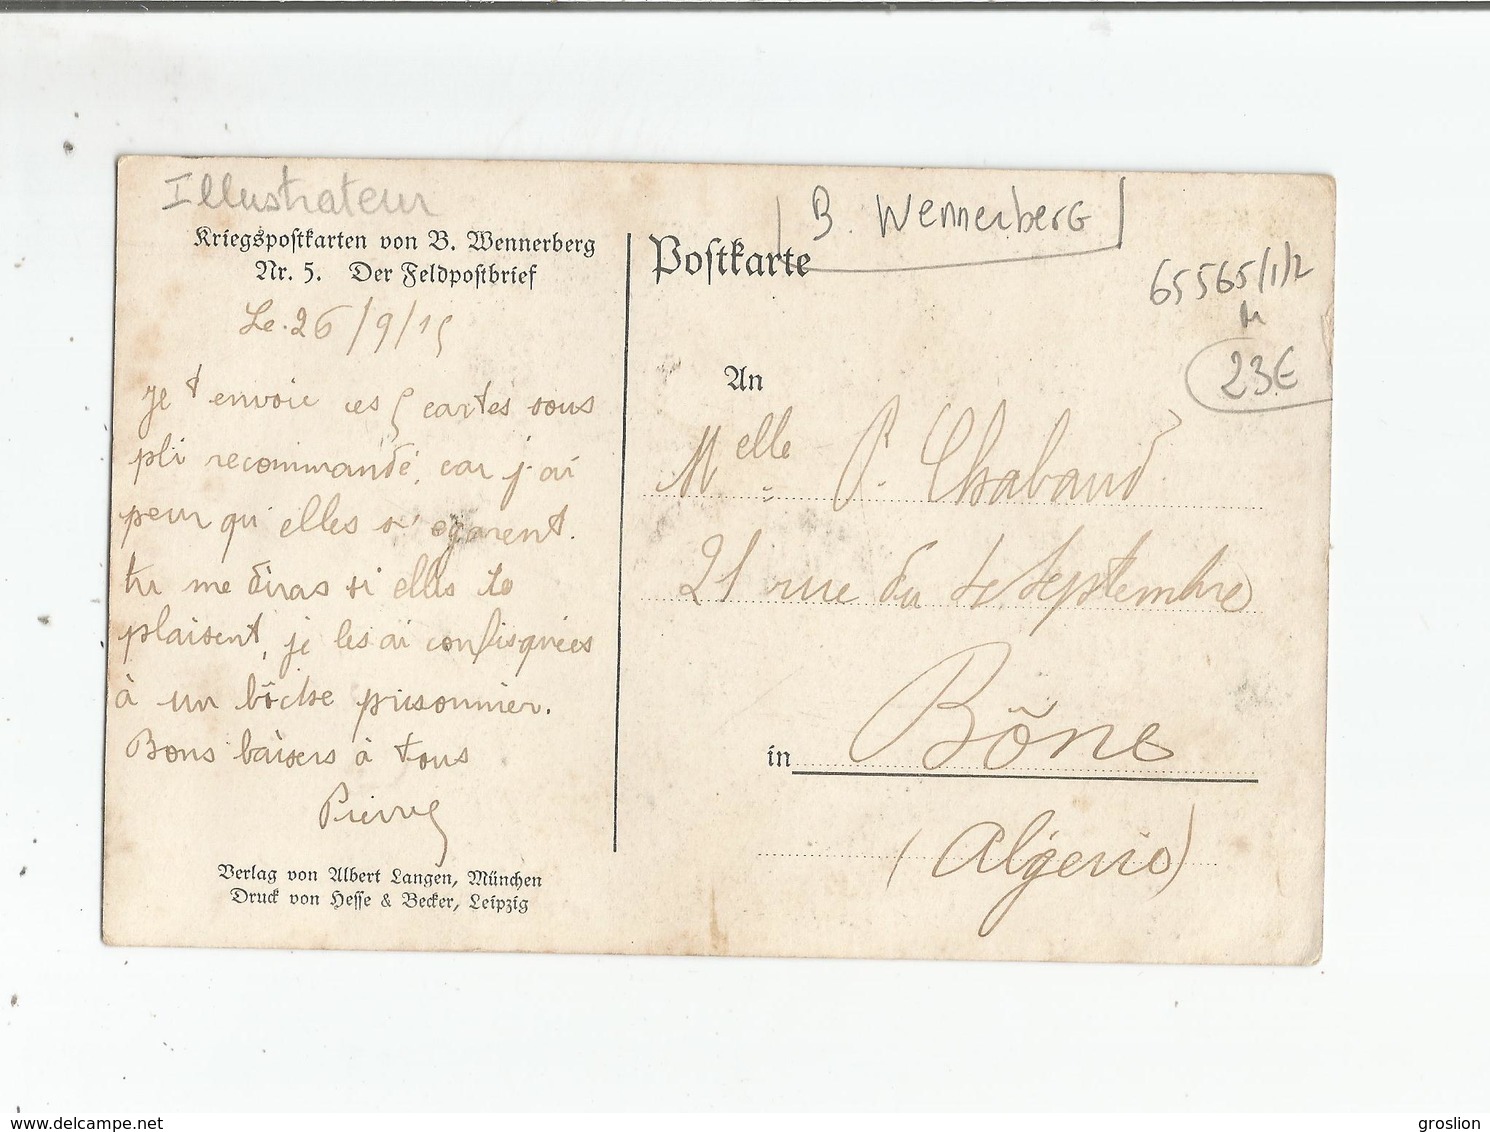 Illustrateur
Kriegspostkarten von B. Wennerberg
Nr. 5. Der Feldpostbrief
Le 26/9/15
Je t envoie ces 5 cartes sous
pli recommandé, car j'ai
peur qu'elles s'egarent.
tu me diras si elles te
plaisent, je les ai confisquées
à un bôche prisonnier.
Bons baisers à tous
Pierre
Verlag von Albert Langen, München
Druck von Hesse & Becker, Leipzig
B. Wennerberg
Postkarte
65565/1/2
23€
An
Melle P. Chabaud
21 rue du 4 Septembre
in Bône
(Algerie)
www.delcampe.net
groslion